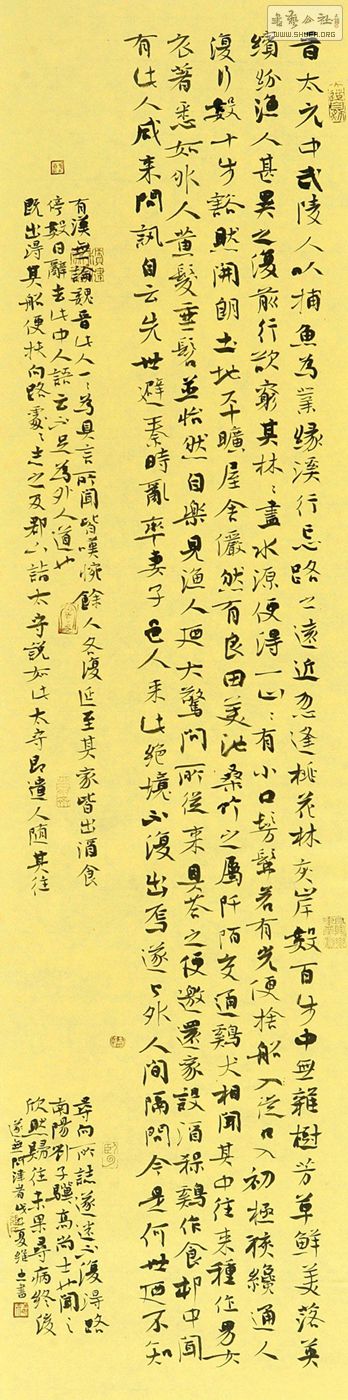 書藝公社
WWW.SHUFA.ORG
晉太元中武陵人以捕魚為業緣溪行忘路之遠近忽逢桃花林夾岸數百步中無雜樹芳草鮮美落英
繽紛漁人甚異之復前行欲窮其林〻盡水源便得一山〻有小口髣髴若有光便捨船入從口入初極狹纔通人
復行數十步豁然開朗土地平曠屋舍儼然有良田美池桑竹之屬阡陌交通鷄犬相聞其中往來種作男女
衣著悉如外人黃髮垂髫並怡然自樂見漁人廼大驚問所從來具答之便邀還家設酒殺鷄作食邨中聞
有此人咸來問訊自云先世避秦時亂率妻子邑人來此絕境不復出焉遂與外人間隔問今是何世廼不知
有漢無論魏晉此人一一為具言所聞皆嘆惋餘人各復延至其家皆出酒食
停數日辭去此中人語云不足為外人道也
既出得其船便扶向路處〻志之及郡下詣太守說如此太守即遣人隨其往
尋向所誌遂迷不復得路
南陽劉子驥高尚士也聞之
欣然歸往未果尋病終後
遂無問津者 夏維之書